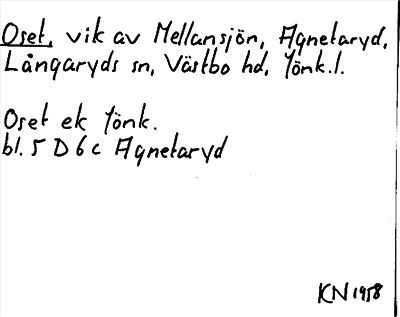 Oset, vik av Mellansjön, Agnetaryd,
Långaryds sn, Västbo hd, Jönk.l.
Oset ek Jönk.
bl. 5 D 6 c Agnetaryd
KN 1958